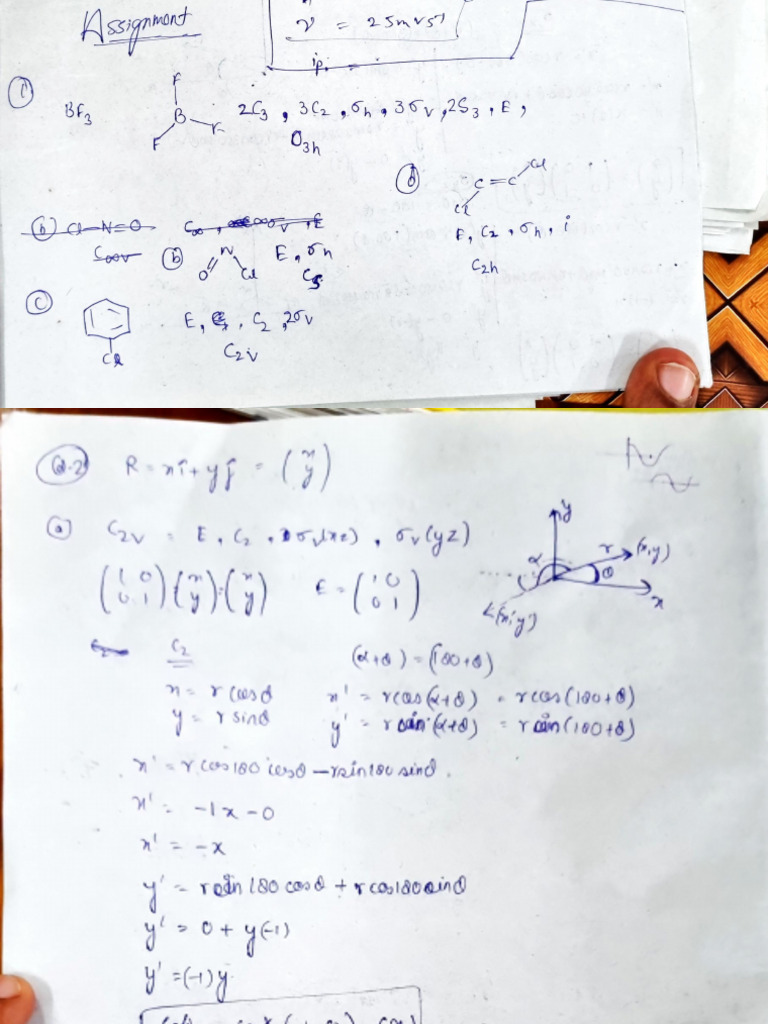 Assignment
ν = 25m/s
ip. =
① BF₃ F B F F 2C₃, 3C₂, σh, 3σv, 2S₃, E,
D₃h
ⓓ C=C Cl Cl
E, C₂, σh, i
C₂h
ⓑ Cl-N=O C∞, ∞σv, E
C∞v
ⓑ N O Cl E, σh
Cs
ⓒ Cl E, C₂, 2σv
C₂v
Q.2 R = xî + yĵ = (x y)
ⓐ C₂v = E, C₂, σv(xz), σv(yz)
(1 0 0 1)(x y) = (x y) E = (1 0 0 1)
y α r (x,y) θ x (x',y')
C₂ (α+θ) = (180+θ)
x = r cosθ x' = r cos(α+θ) = r cos(180+θ)
y = r sinθ y' = r sin(α+θ) = r sin(180+θ)
x' = r cos180 cosθ - r sin180 sinθ.
x' = -1x-0
x' = -x
y' = r sin 180 cosθ + r cos180 sinθ
y' = 0 + y(-1)
y' = (-1)y